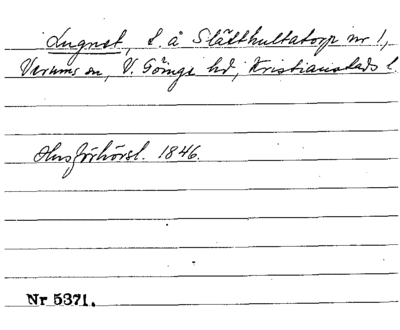 Lugnet, t. å Slätthultatorp nr 1,
Verums sn, V. Göinge hd, Kristianstads l.
Husförhörsl. 1846.
Nr 5371.